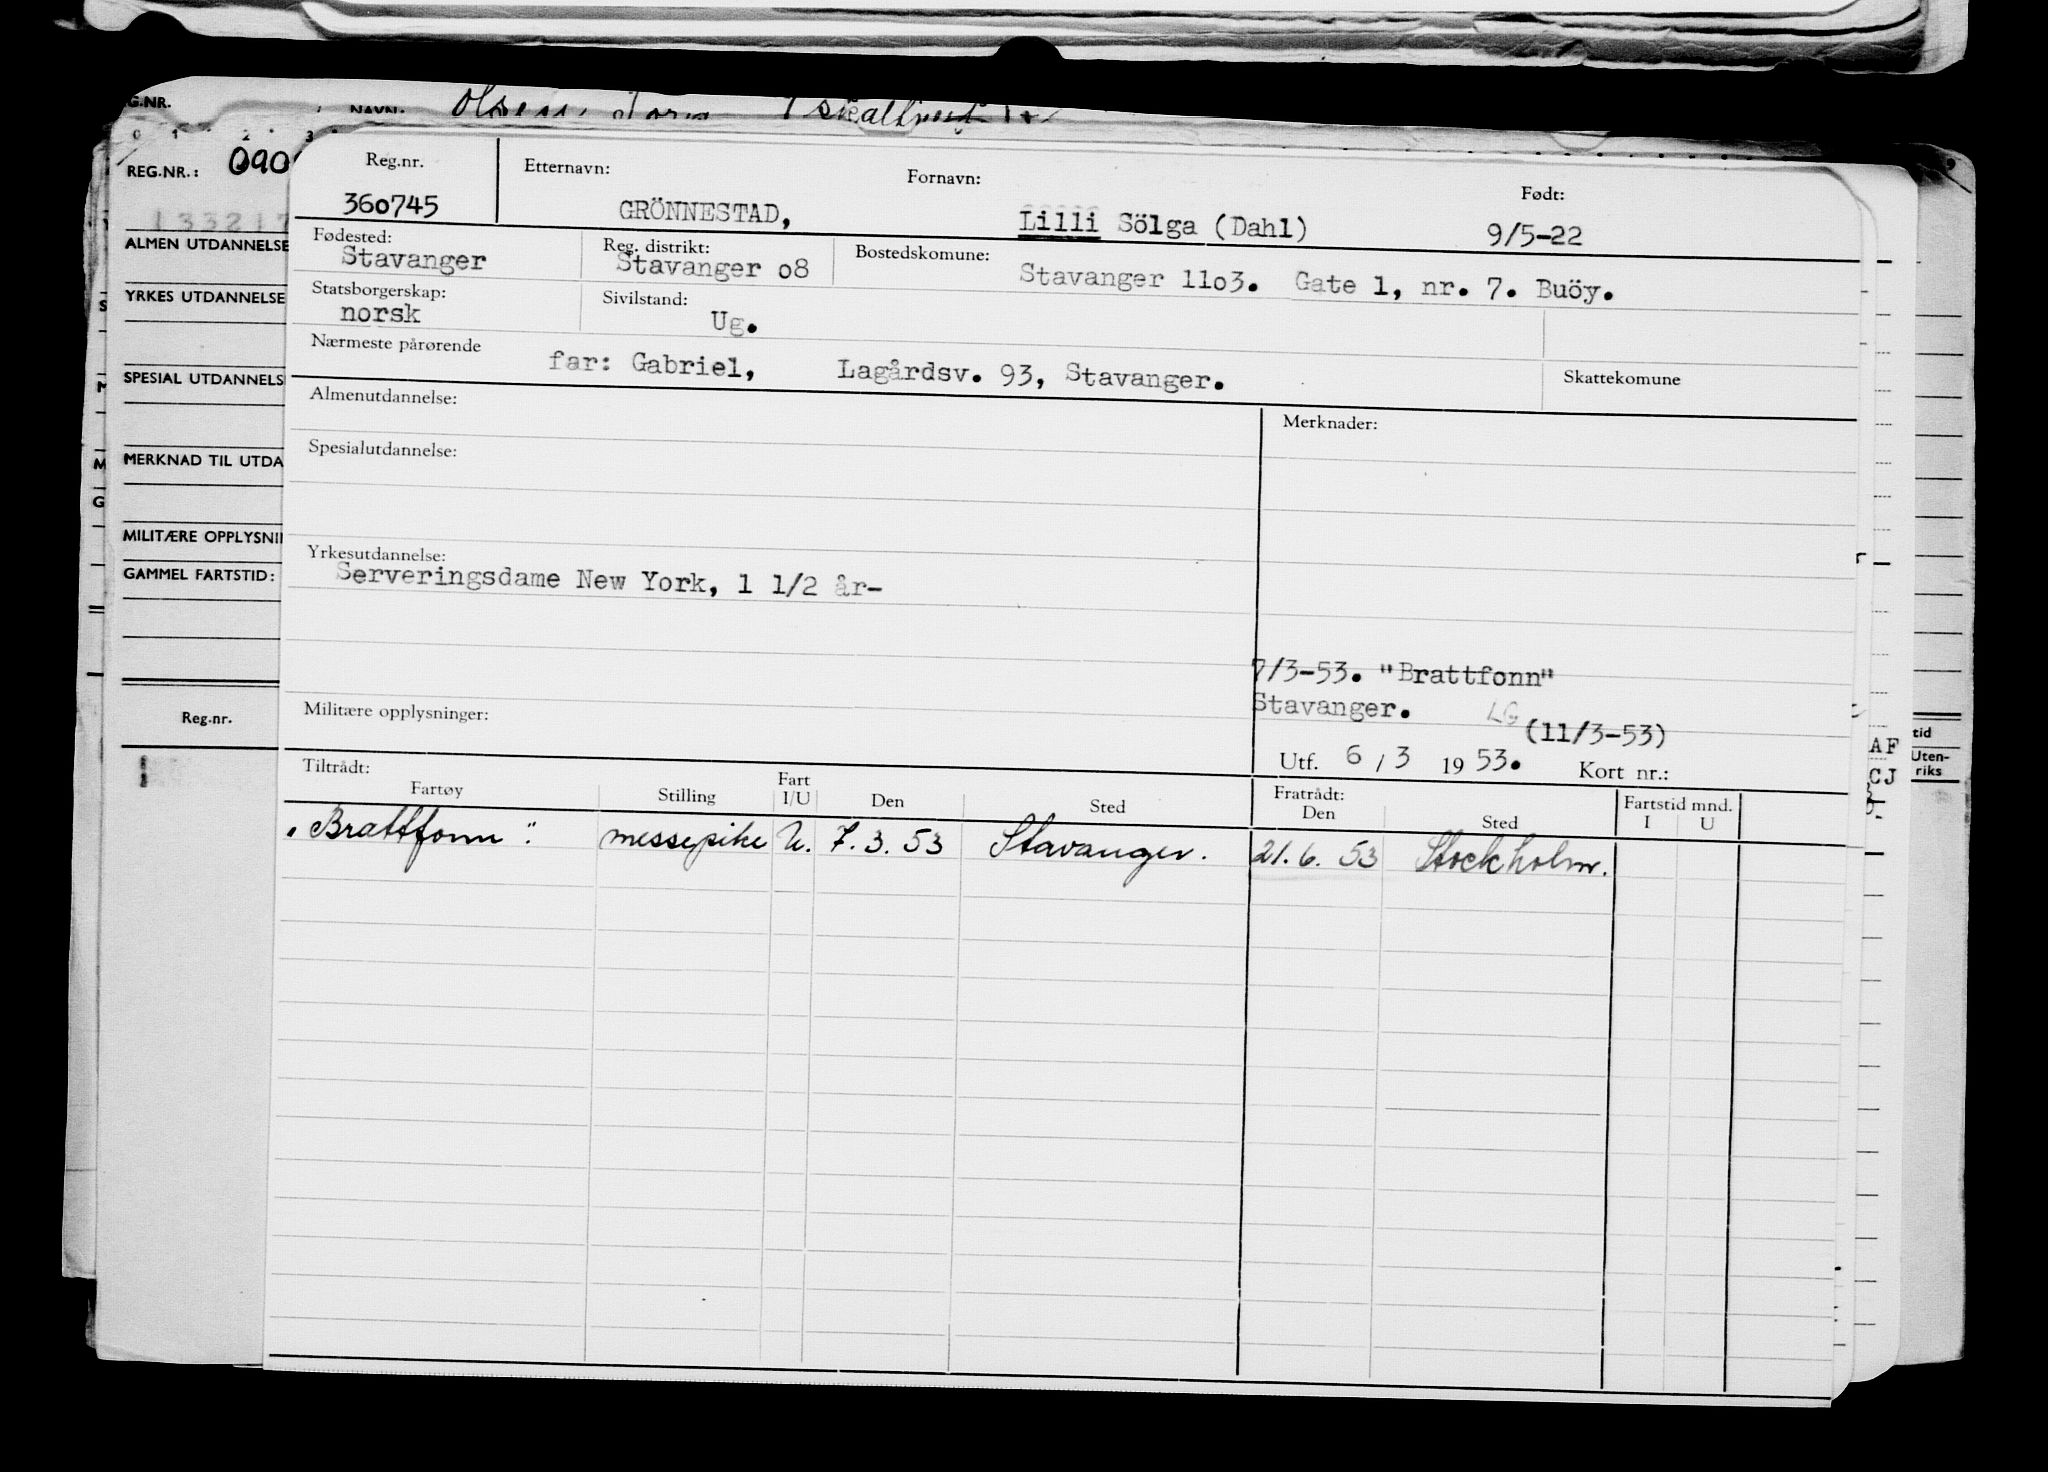 G.NR.
NAVN: Olsen,
0 1 2 3
REG.NR.: 090
133217
ALMEN UTDANNELSE
YRKES UTDANNELSE
SPESIAL UTDANNELS
MERKNAD TIL UTDA
MILITÆRE OPPLYSNI
GAMMEL FARTSTID:
Reg.nr.
Reg.nr. Etternavn: Fornavn: Født:
360745 GRÖNNESTAD, Lilli Sölga (Dahl) 9/5-22
Fødested: Reg. distrikt: Bostedskomune:
Stavanger Stavanger o8 Stavanger 11o3. Gate 1, nr. 7. Buöy.
Statsborgerskap: Sivilstand:
norsk Ug.
Nærmeste pårørende far: Gabriel, Lagårdsv. 93, Stavanger. Skattekomune
Almenutdannelse: Merknader:
Spesialutdannelse:
Yrkesutdannelse:
Serveringsdame New York, 1 1/2 år-
7/3-53. "Brattfonn"
Stavanger. LG (11/3-53)
Militære opplysninger:
Utf. 6 / 3 19 53. Kort nr.:
Tiltrådt: Fratrådt:
Fartøy Stilling Fart I/U Den Sted Den Sted Fartstid mnd. I U
"Brattfonn". messepike U. 7.3.53 Stavanger. 21.6.53 Stockholm.
AF
CJ
tid
Uten-
riks